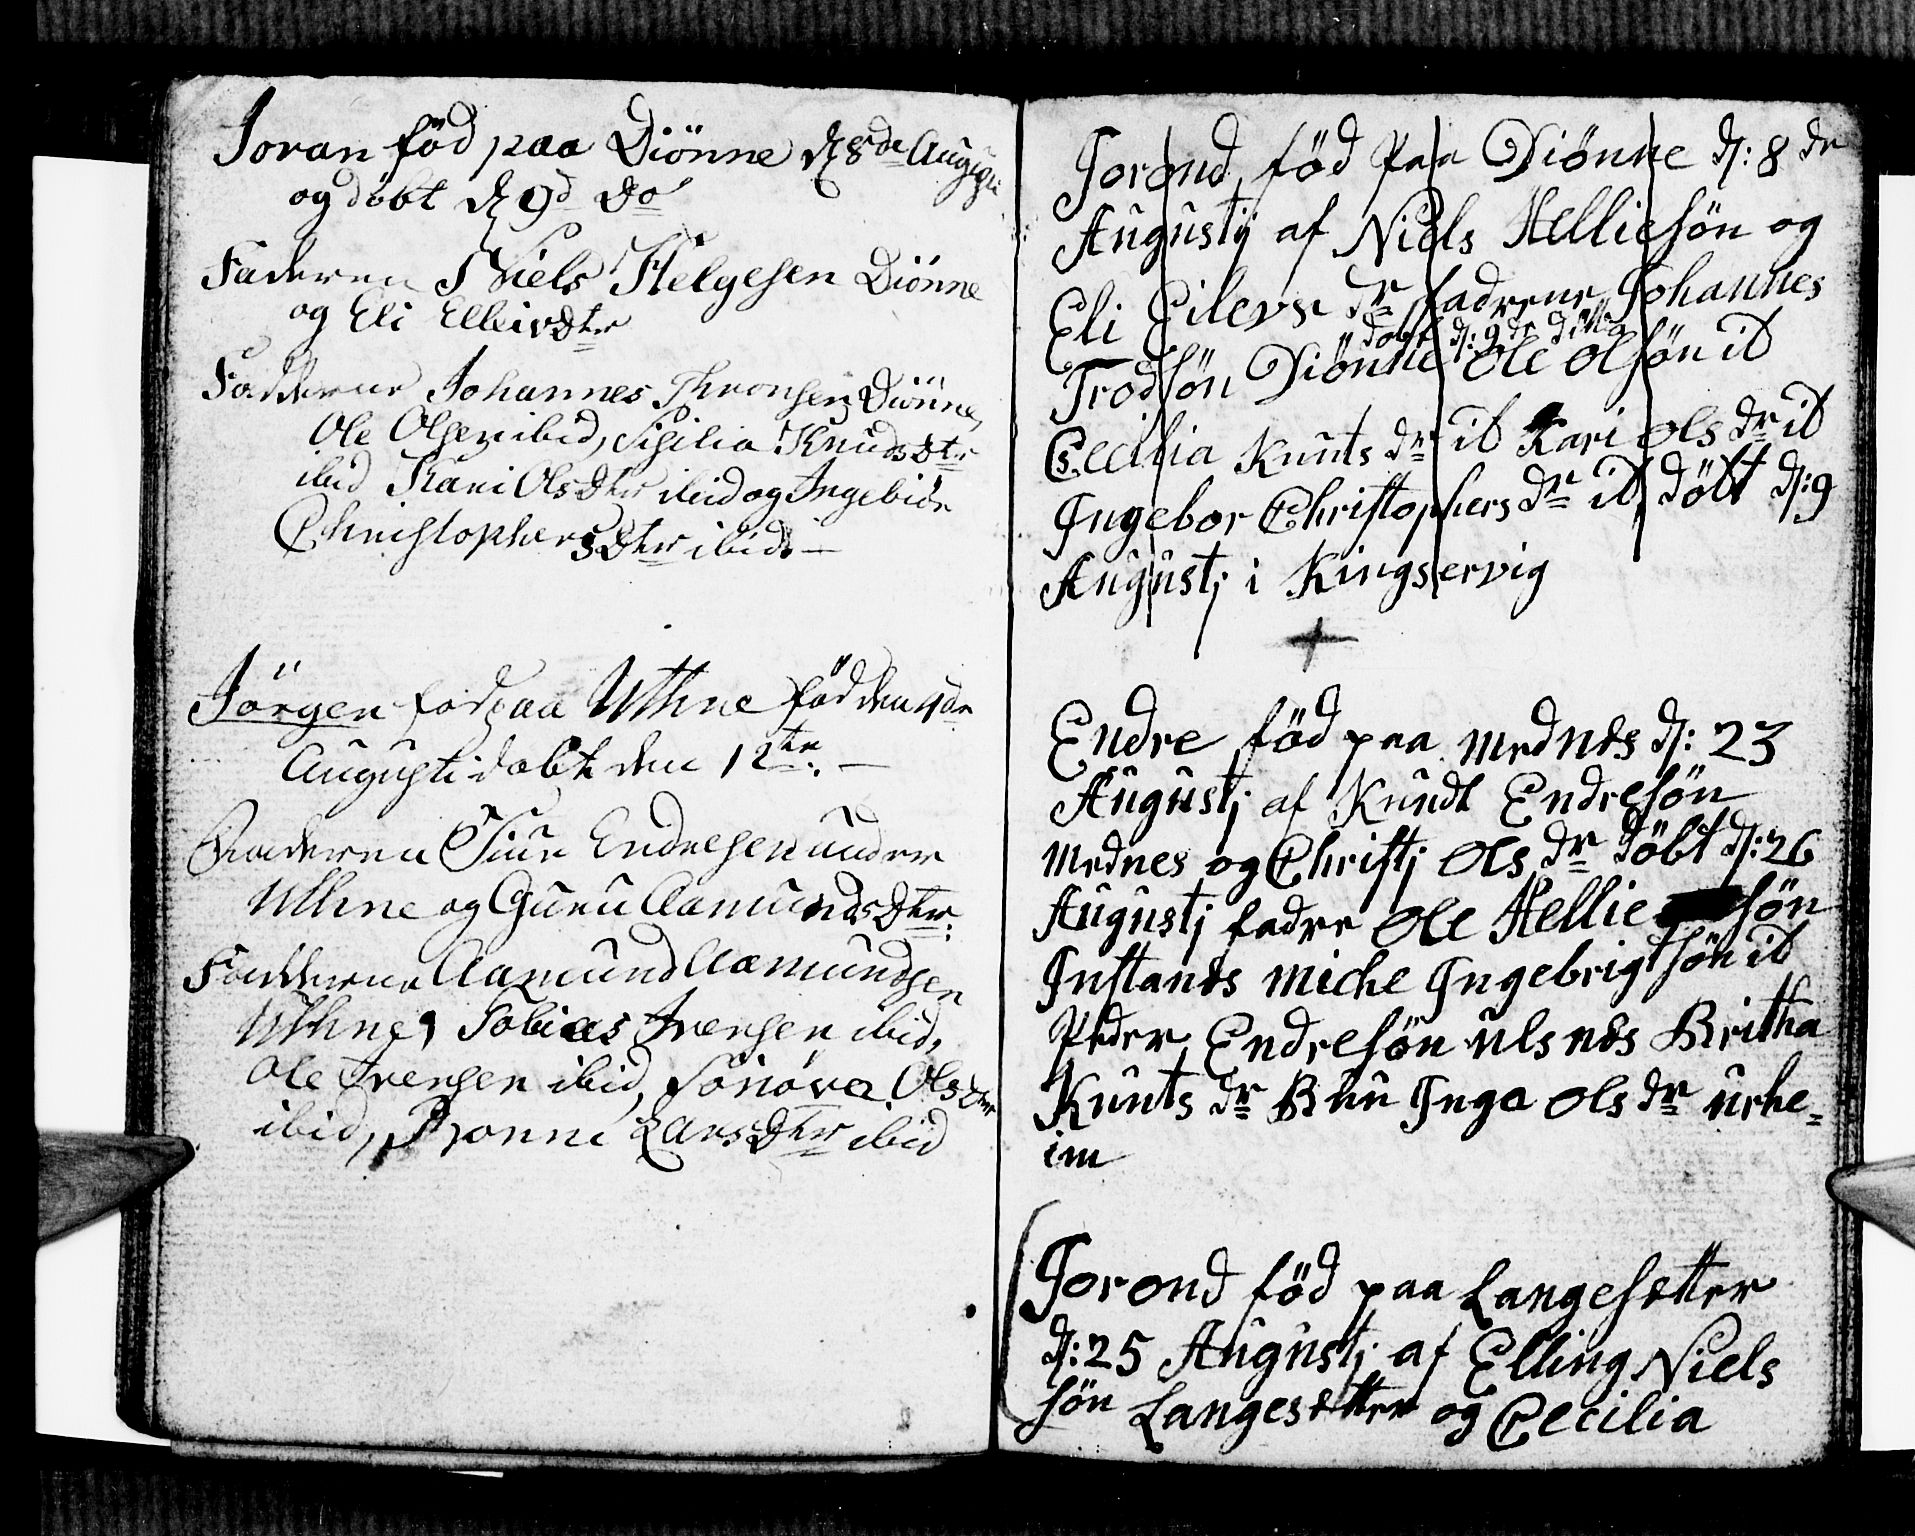 Joran föd paa Diönne d 8de Augusti
og döbt d 9d do
Faderen Niels Helgesen Diönne
og Eli Elleivdtr
Fadderne Johannes Thronsen Diönne,
Ole Olsen ibid, Sisilia Knudsdtr
ibid Kari Olsdtr ibid og Ingebiör
Christophersdtr ibid. —
Jörgen fød paa Uthne föd den 4de
Augusti døbt den 12te. —
Faderen Siur Endresen under
Uthne og Guru Aamundsdtr.
Fadderne Aamund Aamundsen
Uthne, Tobias Iversen ibid,
Ole Iversen ibid, Sönöva Olsdtr
ibid, Larsdtr ibid
Jorond föd paa Diönne d: 8 dr
Augustij af Niels Helliesön og
Eli Eilevs dr fadrene Johannes
döbt d: 9 de ditto
Trodsön Diönne Ole Olsön it
Cecilia Kunts dr it Kari Ols dr it
Ingebor Christophers dr it, döbt d: 9
Augustj i Kingservig
Endre föd paa Mednes d: 23
Augustj af Knudt Endresön
Mednes og Christj Ols dr döbt d: 26
Augustj fadre Ole Hellie sön
Instanes Miche Ingebrigtsön it
Peder Endresön Ulsnes Britha
Kunts dr Buu Inga Ols dr urhe=
im
Jorond föd paa Langesetter
d: 25 Augustj af Elling Niels
sön Langesetter og Cecilia